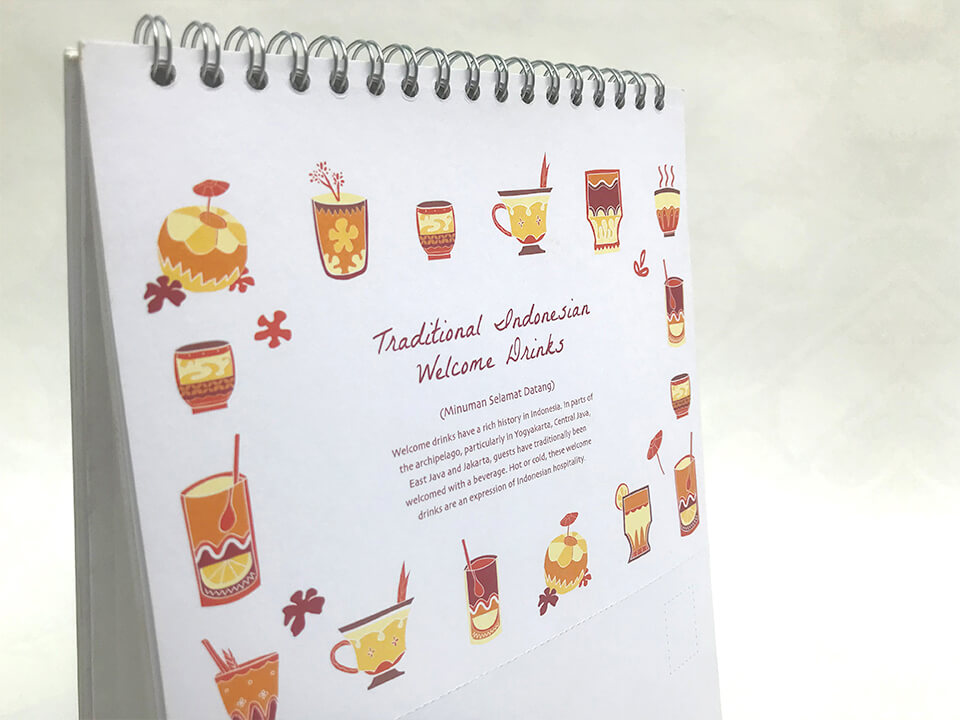 Traditional Indonesian
Welcome Drinks
(Minuman Selamat Datang)
Welcome drinks have a rich history in Indonesia. In parts of
the archipelago, particularly in Yogyakarta, Central Java,
East Java and Jakarta, guests have traditionally been
welcomed with a beverage. Hot or cold, these welcome
drinks are an expression of Indonesian hospitality.